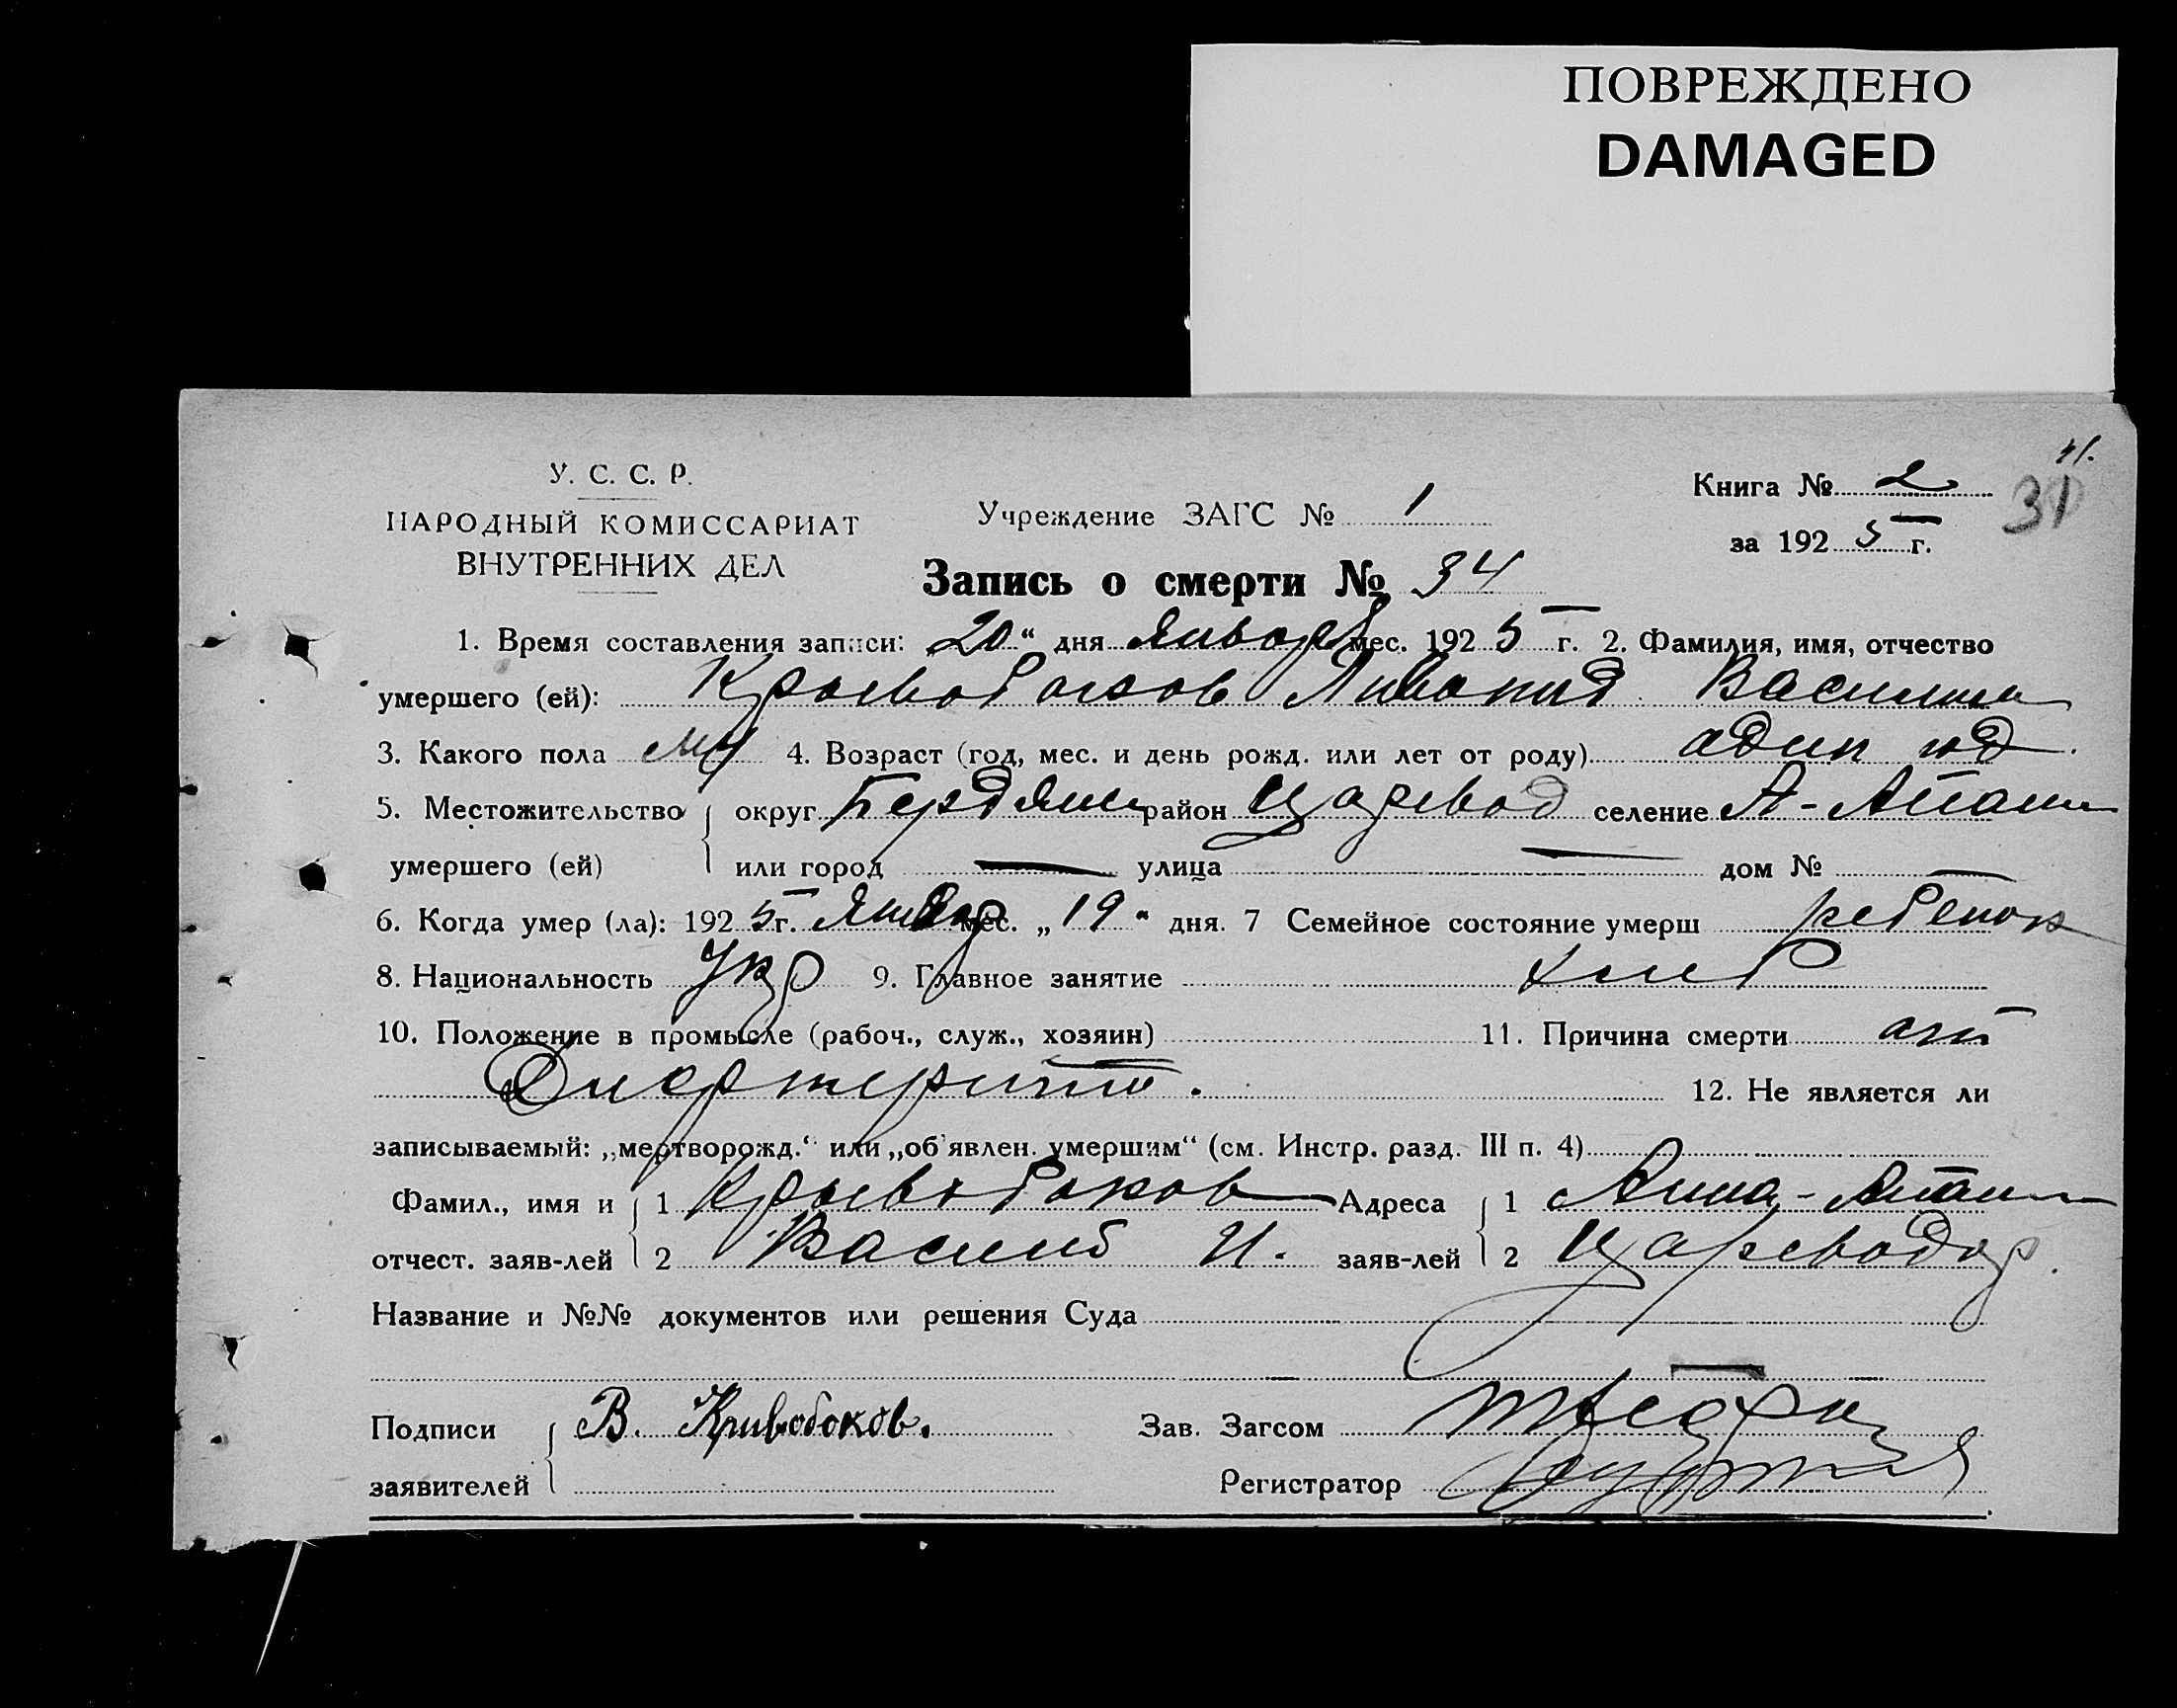 ПОВРЕЖДЕНО
DAMAGED
У. С. С. Р.
НАРОДНЫЙ КОМИССАРИАТ
ВНУТРЕННИХ ДЕЛ
Учреждение ЗАГС № 1
Книга № 2
31
за 1925 г.
Запись о смерти № 34
1. Время составления записи: 20 “ дня Январ мес. 1925 г. 2. Фамилия, имя, отчество
умершего (ей): Крывобоков Василии
3. Какого пола му 4. Возраст (год, мес. и день рожд. или лет от роду) адин год
5. Местожительство округ Бердянс район Царевод селение А-Апани
умершего (ей) или город — улица — дом № —
6. Когда умер (ла): 1925 г. Январ мес. „ 19 “ дня. 7 Семейное состояние умерш ребенок
8. Национальность Укр 9. Главное занятие хлеб
10. Положение в промысле (рабоч., служ., хозяин) 11. Причина смерти от
12. Не является ли
записываемый: „мертворожд.“ или „об'явлен. умершим“ (см. Инстр. разд. III п. 4)
Фамил., имя и 1 Крывобоков Адреса 1 Анна-Апани
отчест. заяв-лей 2 Василий И. заяв-лей 2 Цареводар.
Название и №№ документов или решения Суда
Подписи В. Кривобоков. Зав. Загсом
заявителей Регистратор